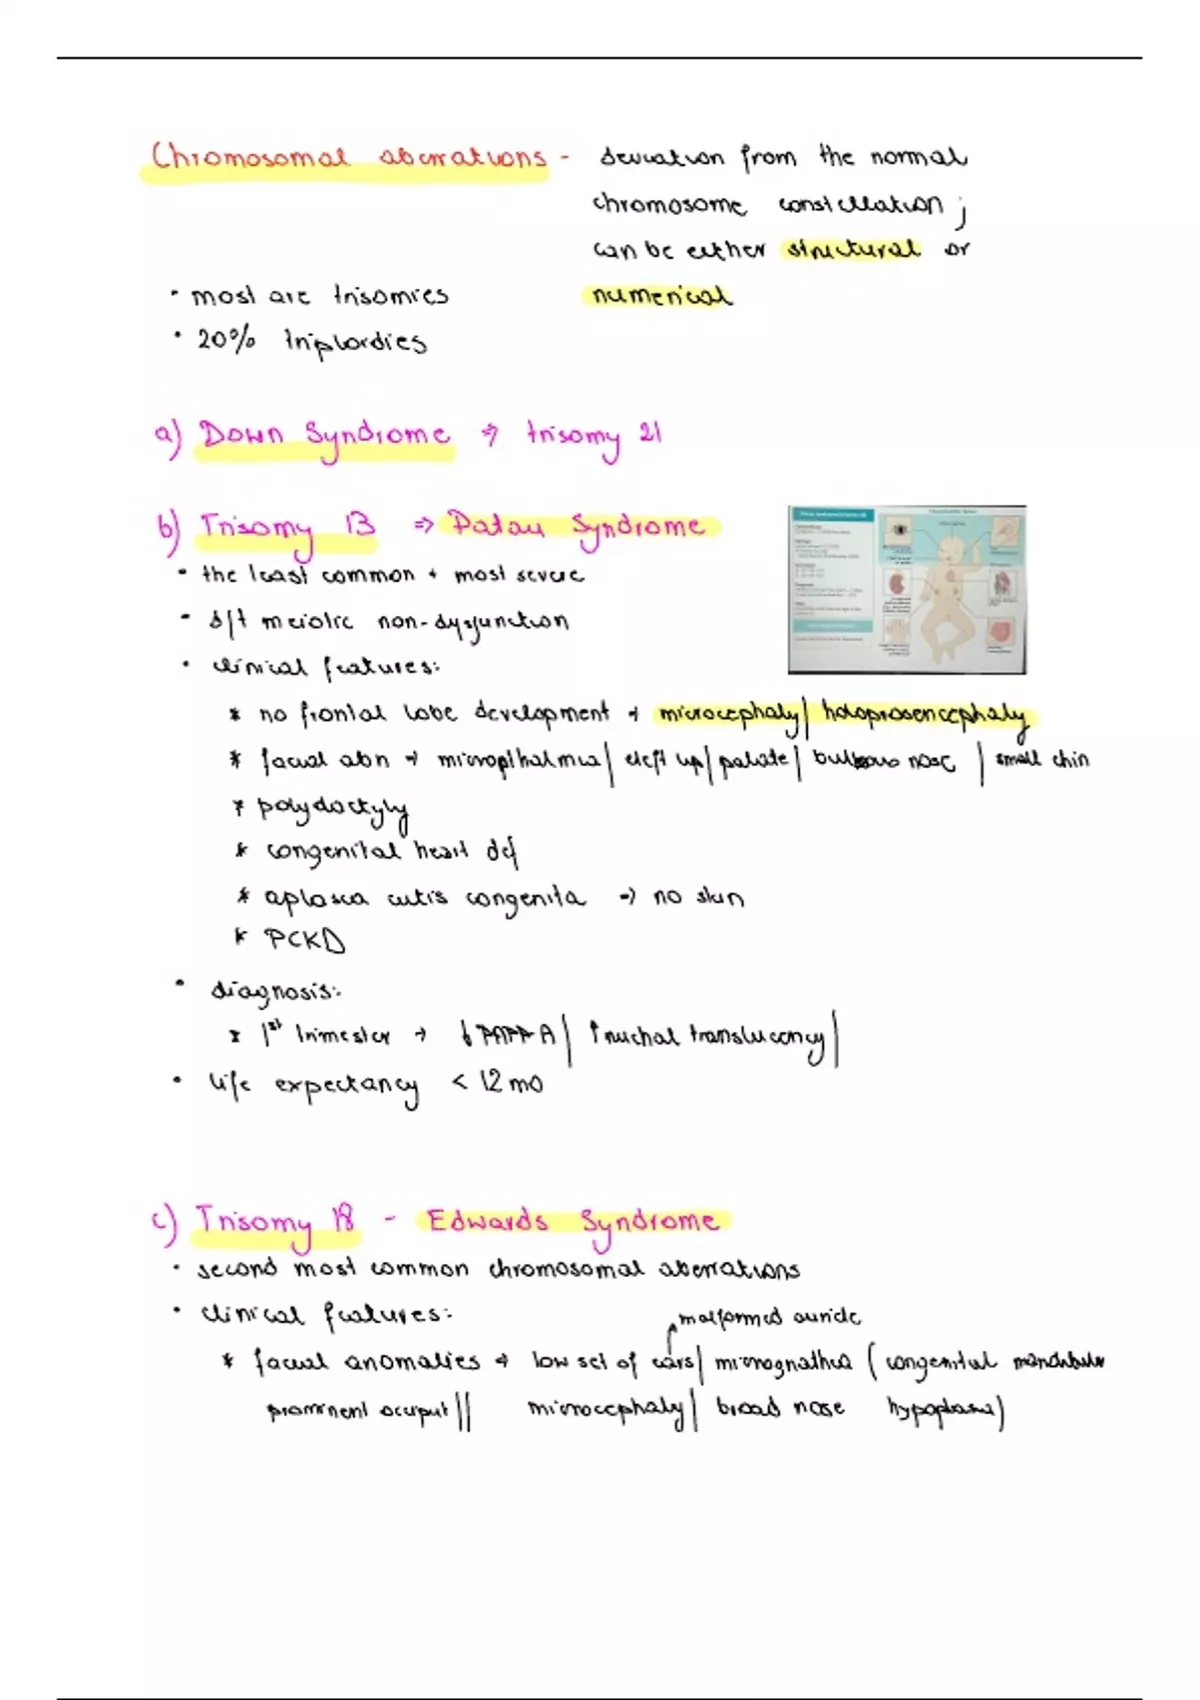 Chromosomal aberrations - deviation from the normal
chromosome constellation ;
can be either structural or
numerical
• most are trisomies
• 20% triploidies
a) Down Syndrome => trisomy 21
b) Trisomy 13 => Patau Syndrome
• the least common + most severe
• d/t meiotic non-dysjunction
• clinical features:
* no frontal lobe development → microcephaly| holoprosencephaly
* facial abn → micropthalmia| cleft lip| palate| bulbous nose | small chin
* polydactyly
* congenital heart def
* aplasia cutis congenita → no skin
* PCKD
• diagnosis:
* 1st trimester → ↓PAPP-A| ↑nuchal translucency|
• life expectancy < 12 mo
c) Trisomy 18 - Edwards Syndrome
• second most common chromosomal aberrations
• clinical features:
malformed auricle
* facial anomalies → low set of ears| micrognathia (congenital mandibular
prominent occiput|| microcephaly| broad nose hypoplasia)